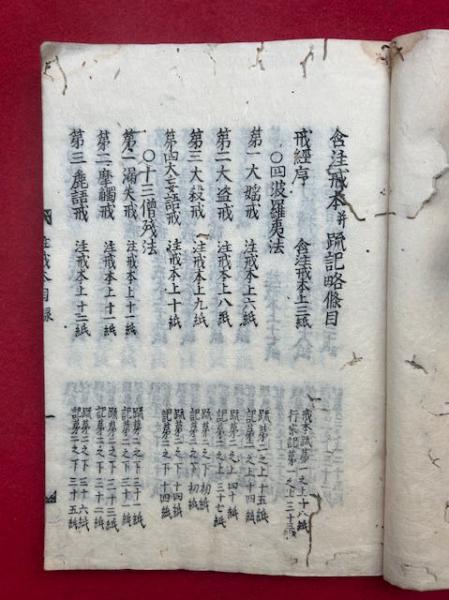 含注戒本并䟽記略條目
戒經序 含注戒本上三紙
戒本䟽第一之上十八紙
行宗記第一之上三十三紙
〇四波羅夷法
第一大婬戒 注戒本上六紙
䟽第二之上十五紙
記第二之上十四紙
第二大盗戒 注戒本上八紙
䟽第二之上四十紙
記第二之上三十七紙
第三大殺戒 注戒本上九紙
䟽第二之下初紙
記第二之下初紙
第四大妄語戒 注戒本上十紙
䟽第二之下十四紙
記第二之下十四紙
〇十三僧残法
第一漏失戒 注戒本上十一紙
䟽第二之下二十一紙
記第二之下二十二紙
第二摩觸戒 注戒本上十一紙
䟽第二之下三十三紙
記第二之下三十二紙
第三麁語戒 注戒本上十二紙
䟽第二之下三十六紙
記第二之下三十五紙
注戒本目録
一